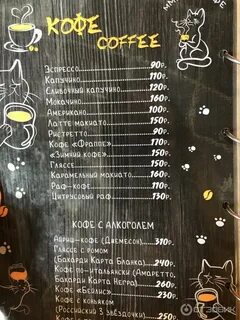 КОФЕ
COFFEE
ЭСПРЕССО 90Р.
КАПУЧИНО 110Р.
СЛИВОЧНЫЙ КАПУЧИНО 120Р.
МОКАЧИНО 160Р.
АМЕРИКАНО 100Р.
ЛАТТЕ МАКИАТО 150Р.
РИСТРЕТТО 90Р.
КОФЕ «ФРАППЕ» 170Р.
«ЗИМНИЙ КОФЕ» 150Р.
ГЛЯССЕ 150Р.
КАРАМЕЛЬНЫЙ МАКИАТО 160Р.
РАФ-КОФЕ 110Р.
ЦИТРУСОВЫЙ РАФ 130Р.
КОФЕ С АЛКОГОЛЕМ
АЙРИШ-КОФЕ (ДЖЕМЕСОН) 310Р.
ГЛЯССЕ С РОМОМ
(БАКАРДИ КАРТА БЛАНКА) 240Р.
КОФЕ ПО-ИТАЛЬЯНСКИ (АМАРЕТТО,
БАКАРДИ КАРТА НЕГРА) 260Р.
КОФЕ «БЕЙЛИС» 230Р.
КОФЕ С КОНЬЯКОМ
(РОССИЙСКИЙ 3 ЗВЁЗДОЧКИ)